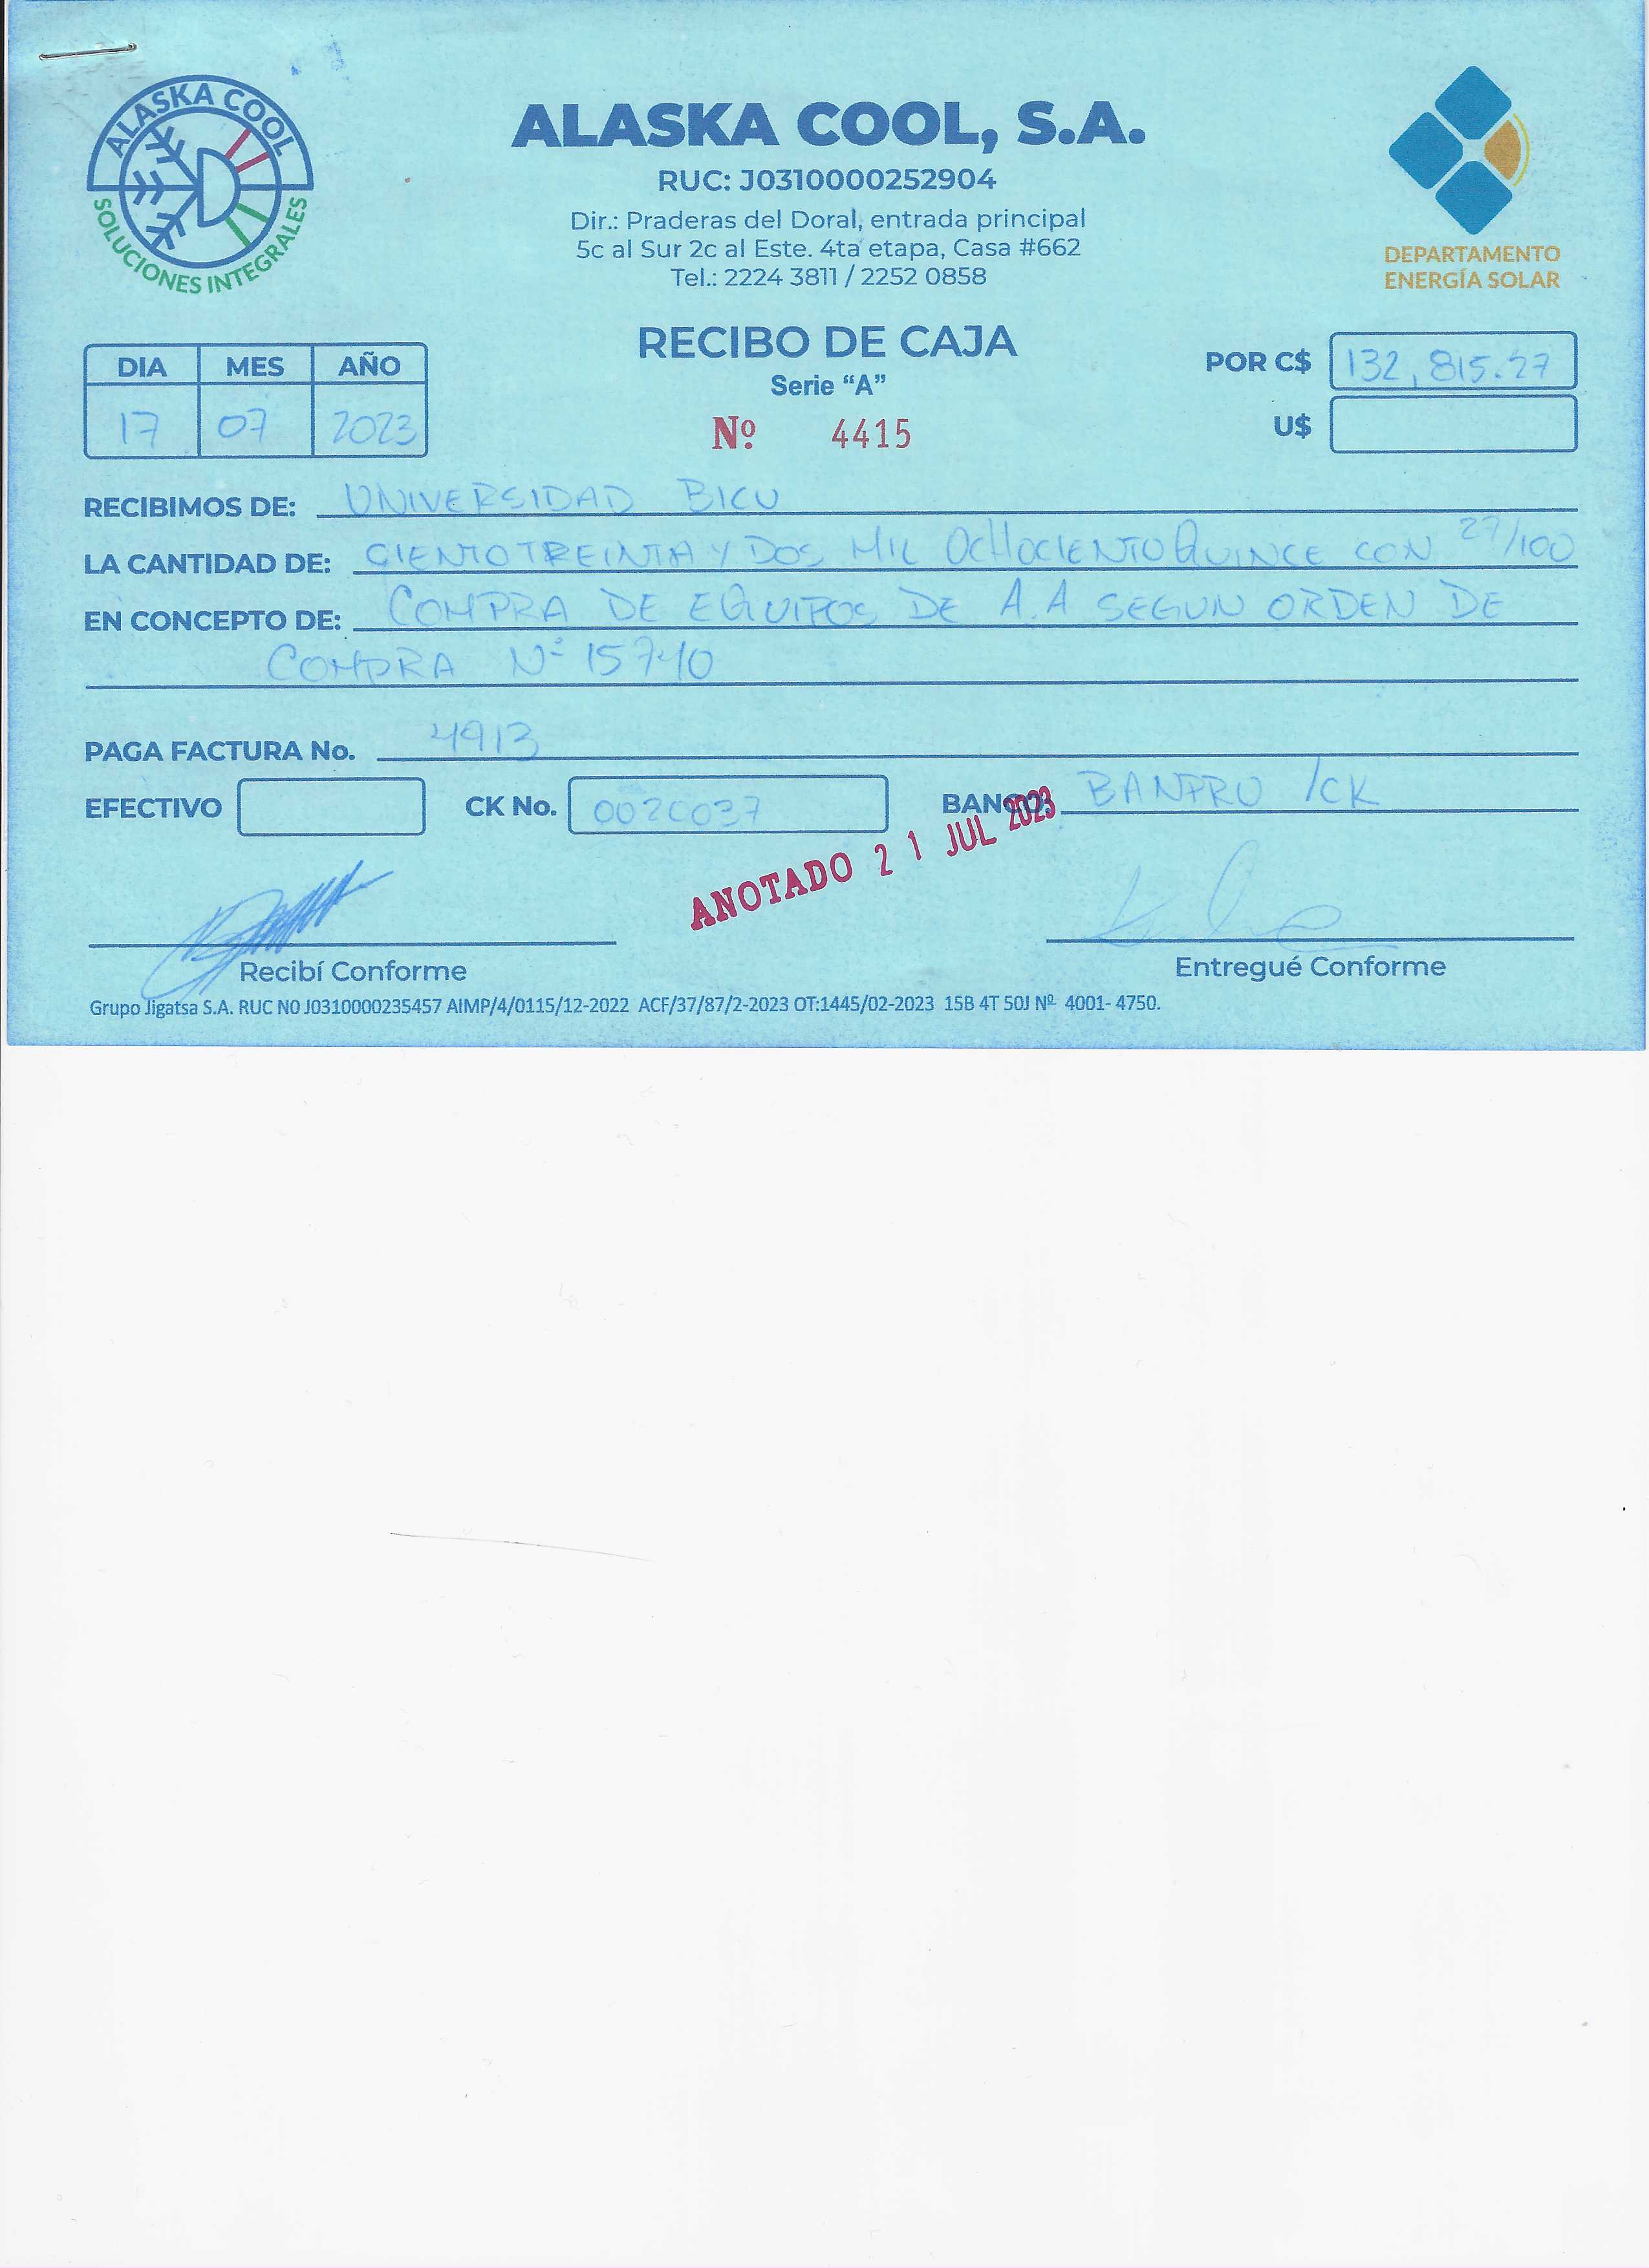 ALASKA COOL
SOLUCIONES INTEGRALES
ALASKA COOL, S.A.
RUC: J0310000252904
Dir.: Praderas del Doral, entrada principal
5c al Sur 2c al Este. 4ta etapa, Casa #662
Tel.: 2224 3811 / 2252 0858
DEPARTAMENTO
ENERGÍA SOLAR
RECIBO DE CAJA
Serie "A"
Nº 4415
DIA MES AÑO
17 07 2023
POR C$ 132,815.27
U$
RECIBIMOS DE: UNIVERSIDAD BICU
LA CANTIDAD DE: CIENTO TREINTA Y DOS MIL OCHOCIENTO QUINCE CON 27/100
EN CONCEPTO DE: COMPRA DE EQUIPOS DE A.A SEGUN ORDEN DE
COMPRA Nº 15740
PAGA FACTURA No. 4913
EFECTIVO CK No. 0020037 BANCO: BANPRO /CK
ANOTADO 21 JUL 2023
Recibí Conforme Entregué Conforme
Grupo Jigatsa S.A. RUC NO J0310000235457 AIMP/4/0115/12-2022 ACF/37/87/2-2023 OT:1445/02-2023 15B 4T 50J Nº 4001- 4750.